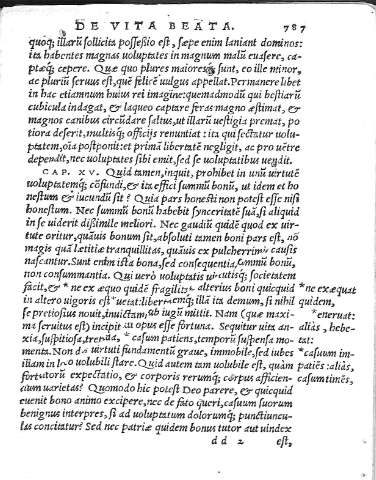 DE VITA BEATA. 787
quoq; illarū sollicita possessio est, sæpe enim laniant dominos:
ita habentes magnas uoluptates in magnum malū euasere, ca-
ptæq; cepere. Quæ quo plures maioresq; sunt, eo ille minor,
ac pluriū seruus est, quē felicē uulgus appellat. Permanere libet
in hac etiamnum huius rei imagine: quemadmodū qui bestiarū
cubicula indagat, & laqueo captare feras magno æstimat, &
magnos canibus circūdare saltus, ut illarū uestigia premat, po
tiora deserit, multisq; officijs renuntiat: ita qui sectatur uolu-
ptatem, oīa postponit: et primā libertatē negligit, ac pro uētre
dependit, nec uoluptates sibi emit, sed se uoluptatibus uendit.
CAP. XV. Quid tamen, inquit, prohibet in unū uirtutē
uoluptatemq; cōfundi, & ita effici summū bonū, ut idem et ho
nestum & iucundū sit? Quia pars honesti non potest esse nisi
honestum. Nec summū bonū habebit synceritatē suā, si aliquid
in se uiderit dissimile meliori. Nec gaudiū quidē quod ex uir-
tute oritur, quāuis bonum sit, absoluti tamen boni pars est, nō
magis quā lætitia et tranquillitas, quāuis ex pulcherrimis causis
nascantur. Sunt enim ista bona, sed consequentia summū bonū,
non consummantia. Qui uerò uoluptatis uirtutisq; societatem
facit, & * ne ex æquo quidē fragilitate alterius boni quicquid *ne exæquat
in altero uigoris est hebetat: libertatemq; illā ita demum, si nihil quidem,
se pretiosius nouit, inuictam, sub iugū mittit. Nam (quæ maxi- *eneruat:
ma seruitus est) incipit illi opus esse fortuna. Sequitur uita an- aliàs, hebe-
xia, suspitiosa, trepida, * casum patiens, temporū suspensa mo- tat:
mentis. Non das uirtuti fundamentū graue, immobile, sed iubes *casuum im-
illam in loco uolubili stare. Quid autem tam uolubile est, quàm patiēs: aliàs,
fortuitorū expectatio, & corporis rerumq; corpus afficien- casum timēs,
tium uarietas? Quomodo hic potest Deo parere, & quicquid
euenit bono animo excipere, nec de fato queri, casuum suorum
benignus interpres, si ad uoluptatum dolorumq; punctiuncu-
las concitatur? Sed nec patriæ quidem bonus tutor aut uindex
d d 2 est,